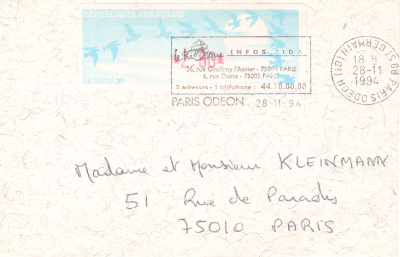 REPUBLIQUE FRANÇAISE
LA POSTE
le Kiosque INFOS SIDA
36, rue Geoffroy l'Asnier - 75004 PARIS
6, rue Dante - 75005 PARIS
2 adresses - 1 téléphone : 44.78.00.00
PARIS ODEON 28-11-94
18 H
28-11
1994
PARIS ODEON
ST GERMAIN (106)
Madame et Monsieur KLEINMANN
51 Rue de Paradis
75010 PARIS